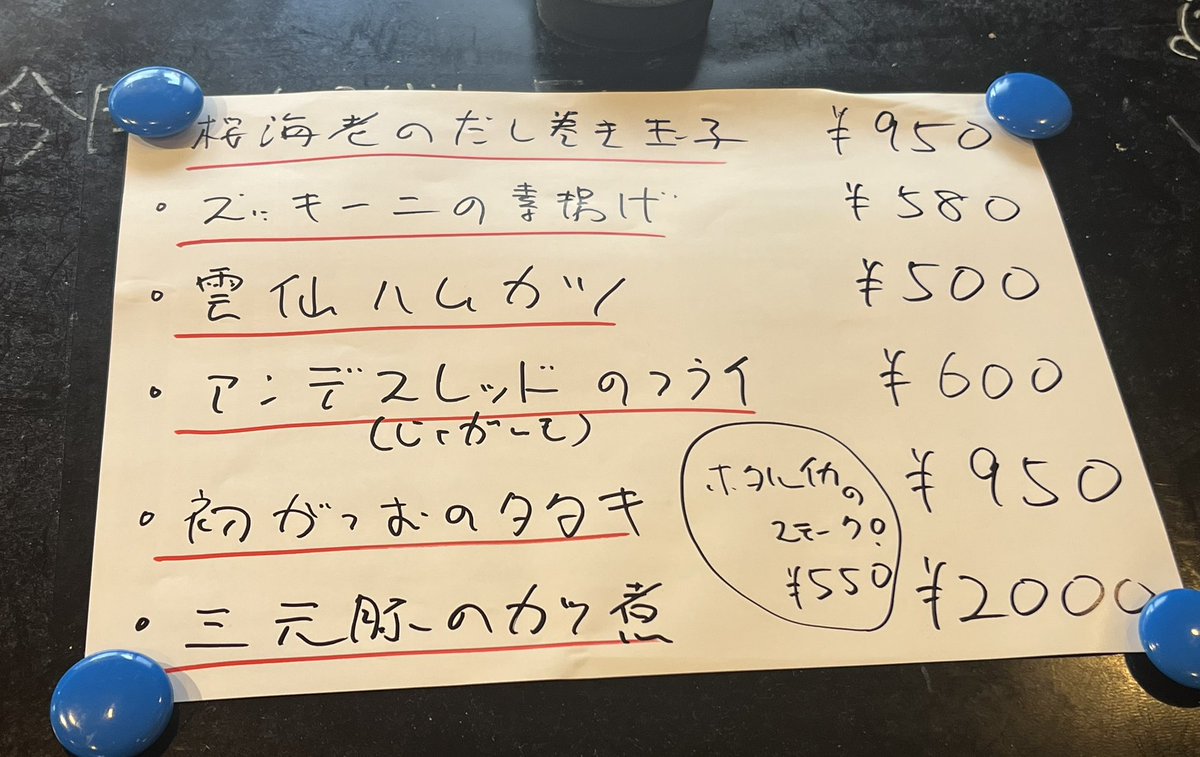 桜海老のだし巻き玉子 ¥950
・ズッキーニの素揚げ ¥580
・雲仙ハムカツ ¥500
・アンデスレッドのフライ ¥600
(じゃがいも)
・初がつおのタタキ ¥950
・三元豚のカツ煮 ¥2000
ホタルイカの
ステーク!
¥550